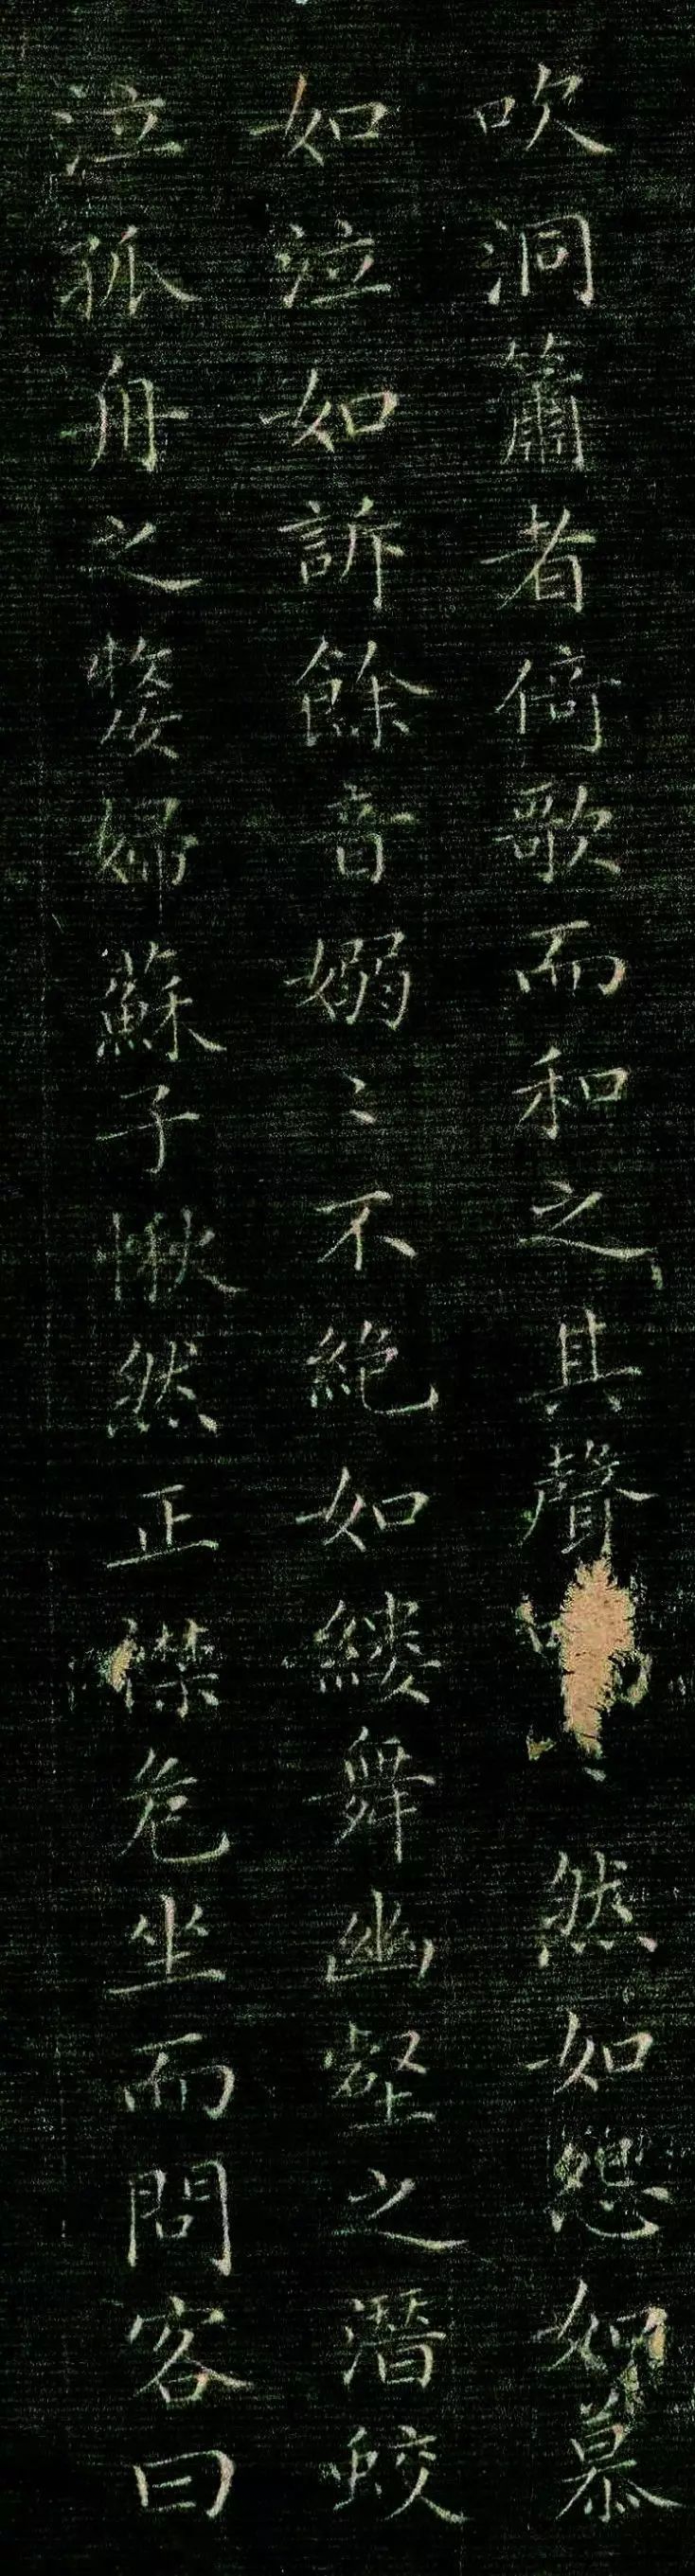 吹洞簫者倚歌而和之其聲然如怨如慕
如泣如訴餘音嫋〻不絶如縷舞幽壑之潜蛟
泣孤舟之嫠婦蘇子愀然正襟危坐而問客曰